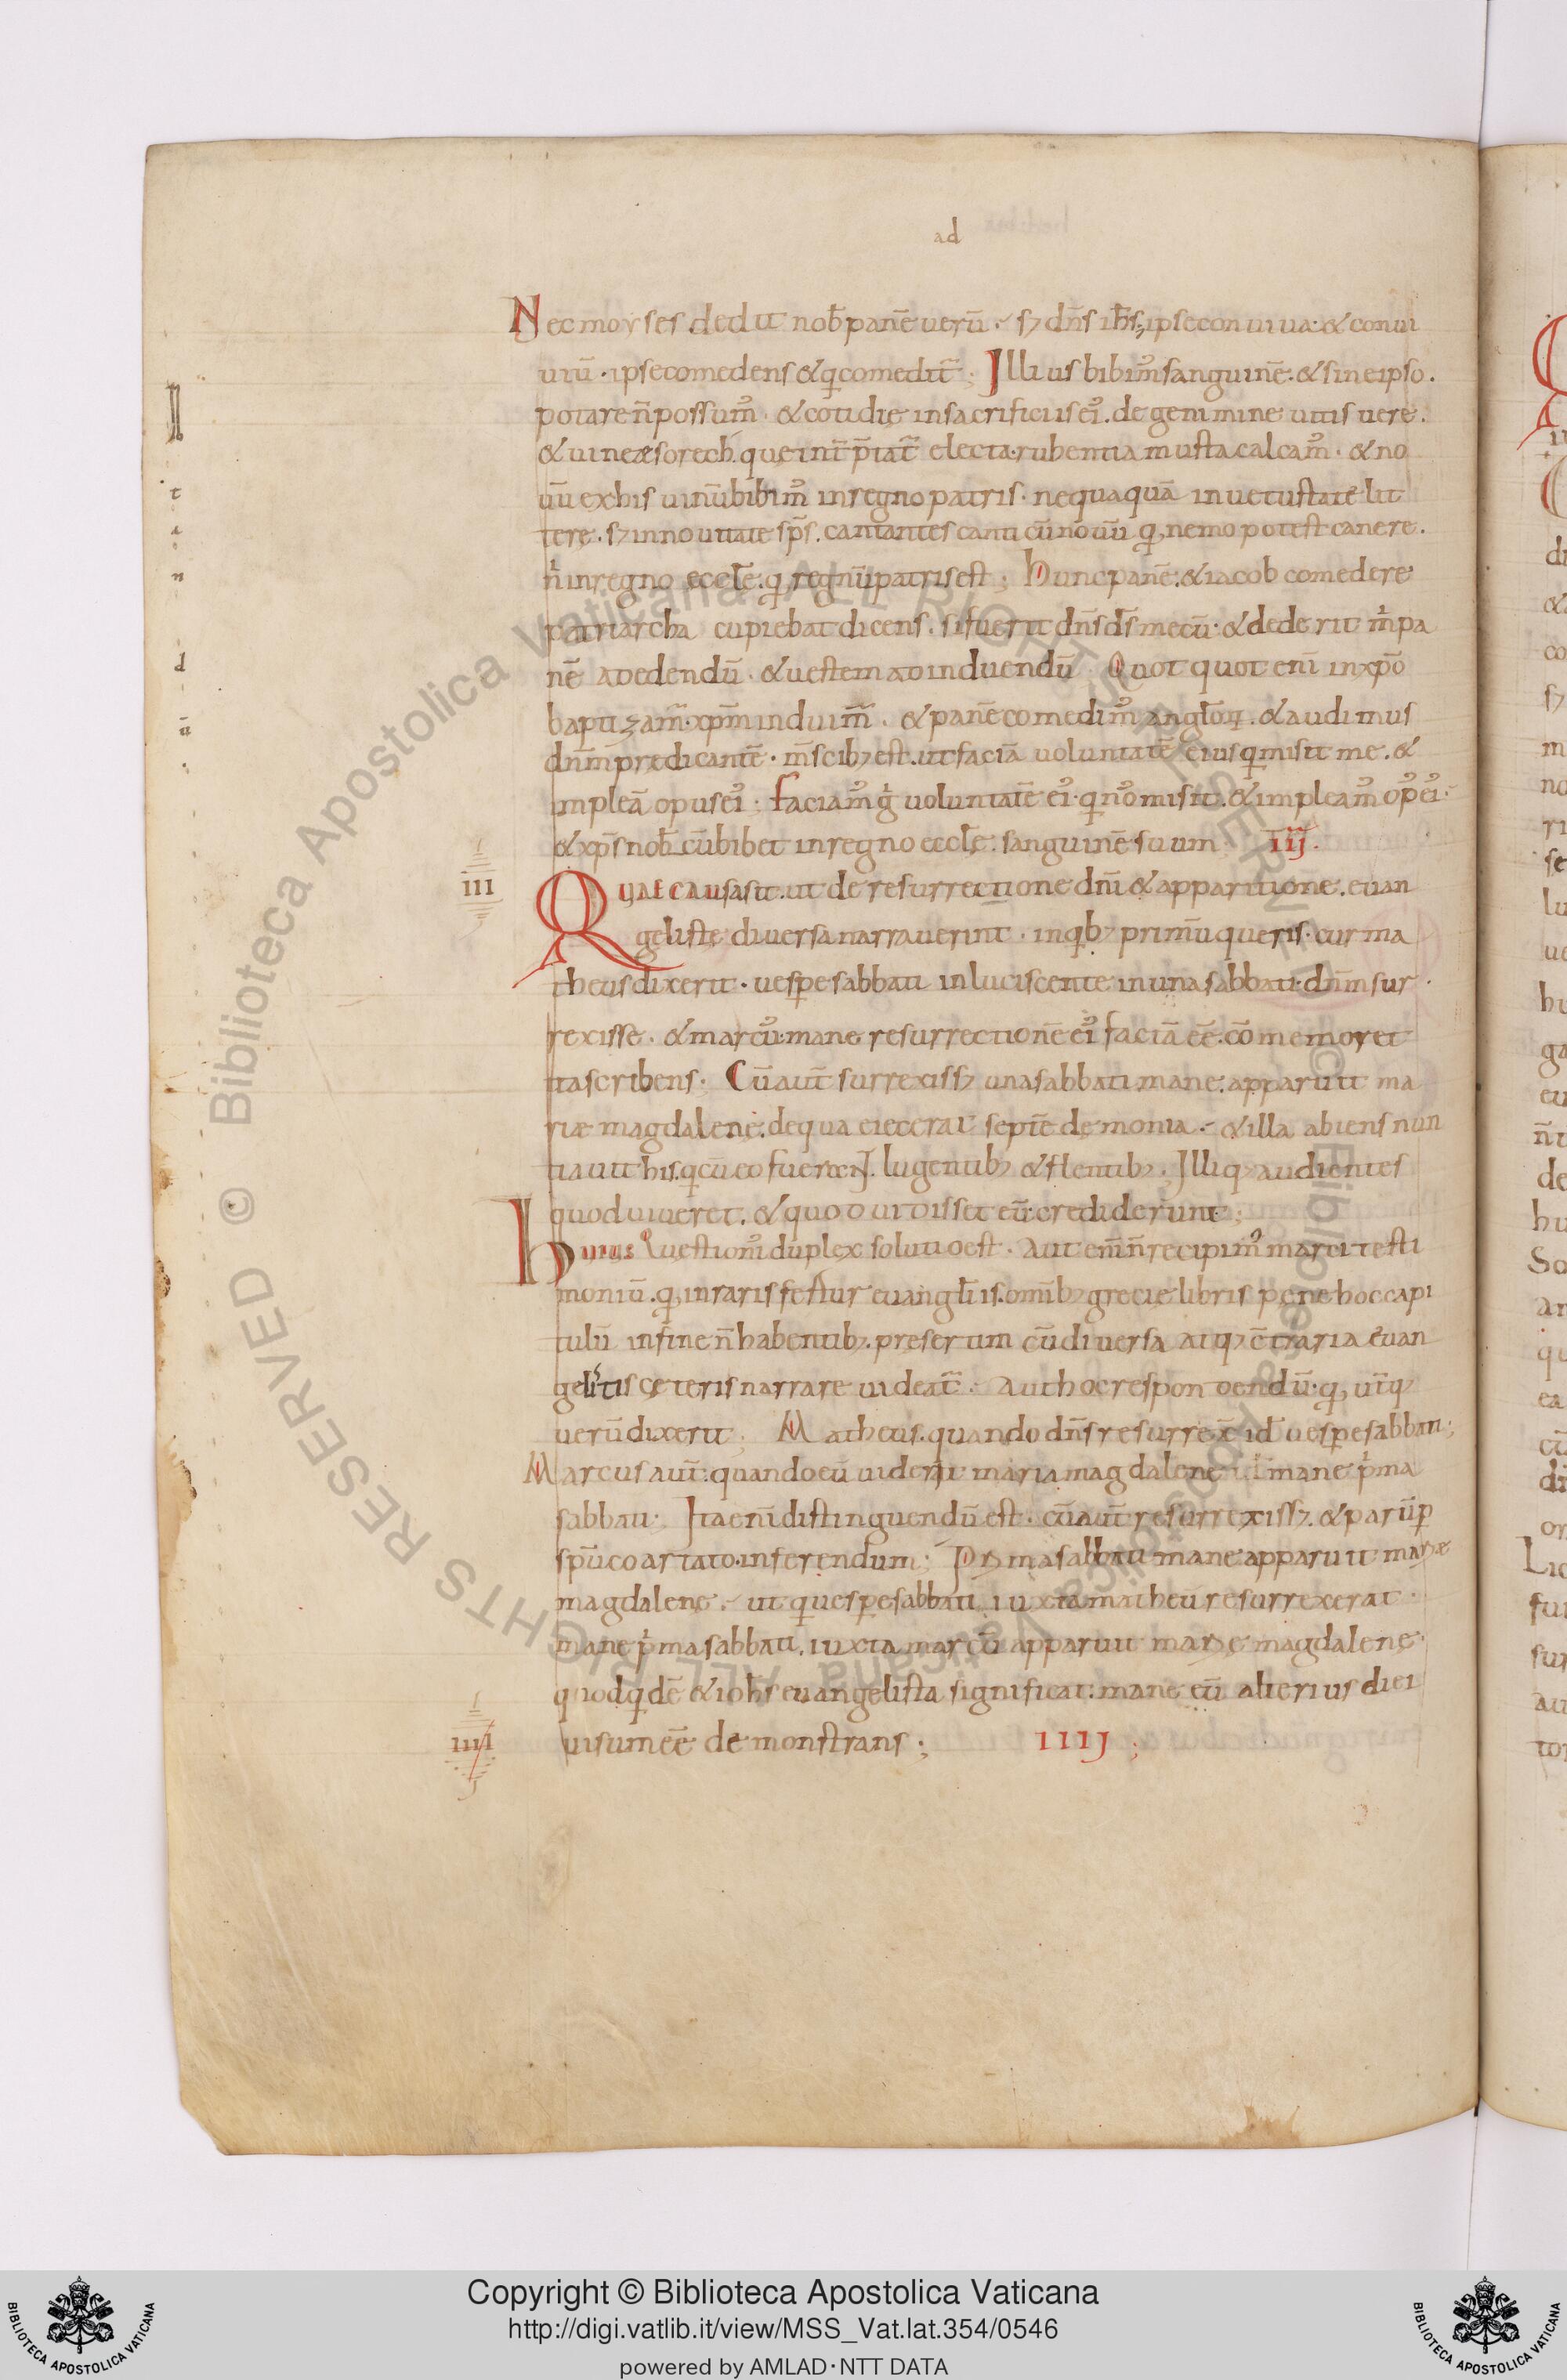 ad
Nec moyses dedit nob̄ panē uerū. sꝫ dn̄s ih̄s, ipse conuiua. & conui
uiū. ipse comedens & q comedit̄; Illius bibim᷒ sanguinē. & sine ipso.
potare n̄ possum᷒. & cotidie in sacrificiis ei᷒. de genimine uitis uere.
& uineæ sorech. que int̄p̄tat̄ electa. rubentia musta calcam᷒. & no
uū ex his uinū bibim᷒ in regno patris. nequaquā in uetustate lit
terę. sꝫ in nouitate sp̄s. cantantes canticū nouū q nemo potest canere.
n in regno eccl̄ę. q regnū patris est; Hunc panē. & iacob comedere
patriarcha cupiebat dicens. si fuerit dn̄s ds̄ mecū. & dederit m pa
nē ad edendū. & uestem ad induendū. Quot quot eni in xpō
baptizam̄. xpm̄ induim̄. & panē comedim᷒ angl̄oꝝ. & audimus
dn̄m predicantē. m̄s cibꝫ est. ut faciā uoluntatē eius q misit me. &
impleā opus ei᷒; faciam᷒ g uoluntatē ei᷒. q no᷒ misit. & impleam᷒ op᷒ ei᷒.
& xp̄s nob̄cū bibet in regno eccl̄ę. sanguinē suum IIJ.
III
QUAE CAUSA sit. ut de resurrectione dn̄i & apparitione. euan
gelistę diuersa narrauerint. in qbꝫ primū queris. cur ma
theus dixerit. uespe sabbati in luciscente in una sabbati. dn̄m sur
rexisse. & marcū. mane resurrectionē ei᷒ faciā eē. cōmemoret
ita scribens. Cū aut̄ surrexissꝫ una sabbati mane. apparuit ma
riæ magdalenę. de qua eiecerat septē demonia. & illa abiens nun
tiauit his. q cū eo fuerant. lugentibꝫ & flentibꝫ. Illiqꝫ audientes
quod uiueret. & quod uidisset eū. crediderunt;
HUIUS Questioni᷒ duplex solutio est. Aut em̄ n̄ recipim᷒ marci testi
moniū. q in raris fertur euangl̄iis. omib̄ꝫ grecię libris pene hoc capi
tulū in fine n̄ habentibꝫ. presertim cū diuersa atqꝫ c̄traria euan
gelitis ceteris narrare uideat̄. Aut hoc respondendū. q ut̄qꝫ
uerū dixerit. Matheus. quando dn̄s resurrex̄ id̄ uespe sabbati;
Marcus aut̄. quando eū uiderit maria magdalene id̄ mane pma
sabbati; Ita eni distinguendū est. cū aut̄ resurrexissꝫ. & parūp
spū coartato. inferendum; Prima sabbati mane apparuit mariæ
magdalenę. ut q uespe sabbati iuxta matheū resurrexerat
mane pma sabbati. iuxta marcū apparuit marię magdalenę.
quod qdē & ioh̄s euangelista significat. mane eū alterius diei
IIII
uisum eē demonstrans; IIIJ;
Copyright © Biblioteca Apostolica Vaticana
http://digi.vatlib.it/view/MSS_Vat.lat.354/0546
powered by AMLAD・NTT DATA